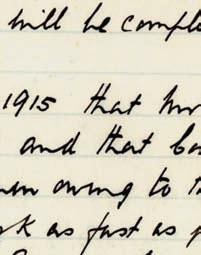 will be comple
1915 that
and that
owing to
as fast as